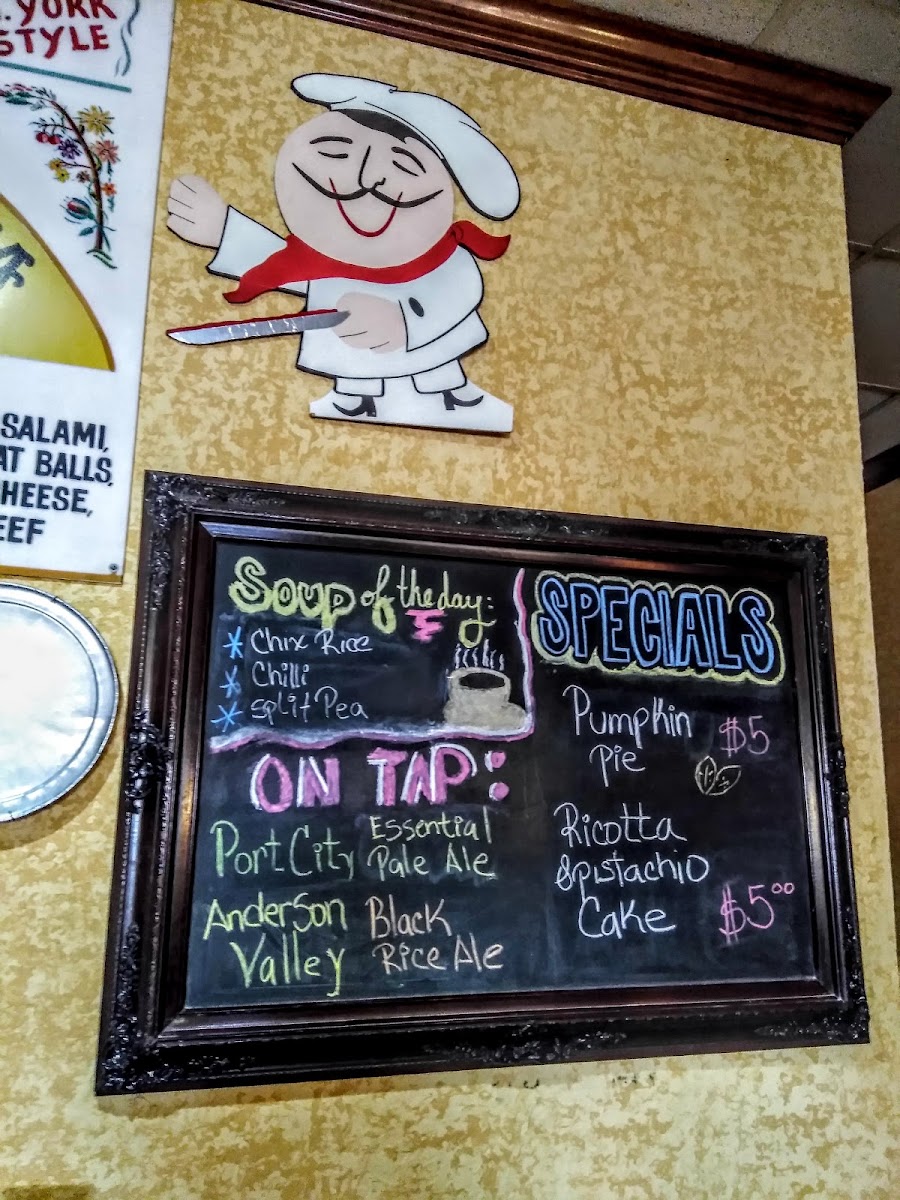 YORK
STYLE
SALAMI,
AT BALLS,
HEESE,
EEF
Soup of the day:
Chix Rice
Chilli
Split Pea
ON TAP:
Port City Essential Pale Ale
Anderson Valley Black Rice Ale
SPECIALS
Pumpkin
Pie $5
Ricotta
& Pistachio
Cake $5.00